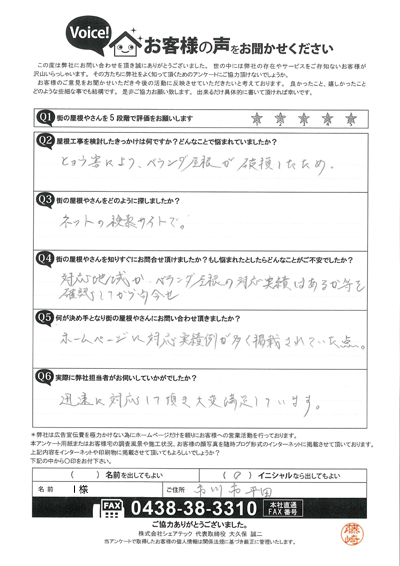 Voice!
お客様の声をお聞かせください
この度は弊社にお問い合わせを頂き誠にありがとうございました。世の中には弊社の存在やサービスをご存知ないお客様が
沢山いらっしゃいます。その方たちに弊社をよく知って頂くためのアンケートにご協力頂けないでしょうか。
お客様のご意見をお聞かせいただき今後の活動に反映させていただきたいと考えております。良かったこと、嬉しかったこと
どのような些細な事でも結構です。是非ご協力お願い致します。出来るだけ具体的に書いて頂ければ幸いです。
Q1 街の屋根やさんを5段階で評価をお願いします
Q2 屋根工事を検討したきっかけは何ですか？どんなことで悩まれていましたか？
ひょう害により、ベランダ屋根が破損したため。
Q3 街の屋根やさんをどのように探しましたか？
ネットの検索サイトで。
Q4 街の屋根やさんを知りすぐにお問合せ頂けましたか？もし悩まれたとしたらどんなことがご不安でしたか？
対応地域か、ベランダ屋根の対応実績はあるか等を
確認してから問合せ
Q5 何が決め手となり街の屋根やさんにお問い合わせ頂きましたか？
ホームページに対応実績例が多く掲載されていた点。
Q6 実際に弊社担当者がお伺いしていかがでしたか？
迅速に対応して頂き大変満足しています。
＊弊社は広告宣伝費を極力かけない為にホームページだけを頼りにお客様への営業活動を行っております。
本アンケート用紙またはお客様宅の調査風景や施工状況、お客様の顔写真を随時ブログ形式のインターネットに掲載させて頂いております。
上記内容をインターネットや印刷物に掲載させて頂いてもよろしいでしょうか？
下記の中から〇印をお付下さい。
（　）名前を出してもよい （○）イニシャルなら出してもよい
名前 I様 ご住所 市川市平田
FAX 0438-38-3310 本社直通 FAX番号
ご協力ありがとうございました。
株式会社シェアテック 代表取締役 大久保 誠二
当アンケートで取得したお客様の個人情報は関係法規に基づき厳正に管理いたします。